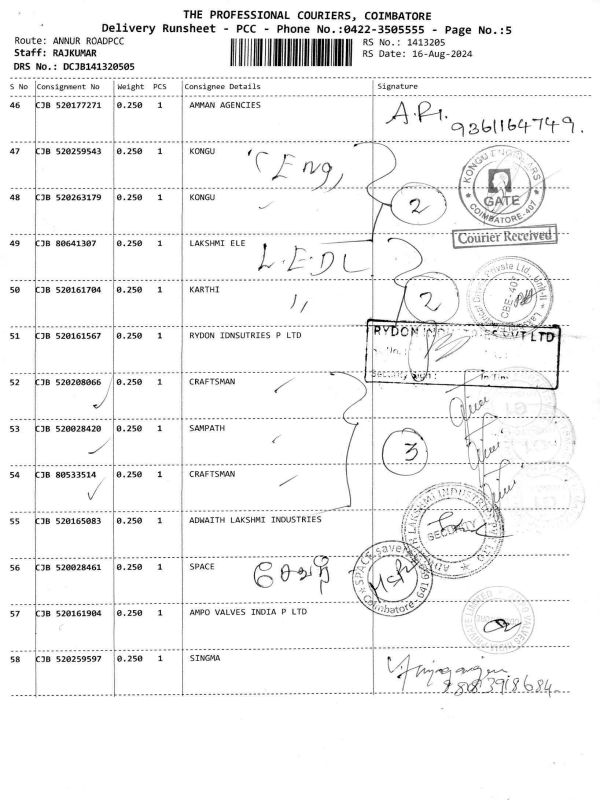 THE PROFESSIONAL COURIERS, COIMBATORE
Delivery Runsheet - PCC - Phone No.:0422-3505555 - Page No.:5
Route: ANNUR ROADPCC RS No.: 1413205
Staff: RAJKUMAR RS Date: 16-Aug-2024
DRS No.: DCJB141320505
S No Consignment No Weight PCS Consignee Details Signature
46 CJB 520177271 0.250 1 AMMAN AGENCIES
9361164749.
47 CJB 520259543 0.250 1 KONGU (Eng)
48 CJB 520263179 0.250 1 KONGU 2
KONGU ENGINEERS
GATE
COIMBATORE-407
Courier Received
49 CJB 80641307 0.250 1 LAKSHMI ELE L.E.DL
50 CJB 520161704 0.250 1 KARTHI 〃 2
Private Ltd. Unit-II
CBE-407
51 CJB 520161567 0.250 1 RYDON IDNSUTRIES P LTD
RYDON INDUSTRIES PVT LTD
Security Sign : In Time
52 CJB 520208066 0.250 1 CRAFTSMAN
53 CJB 520028420 0.250 1 SAMPATH 3
54 CJB 80533514 0.250 1 CRAFTSMAN
55 CJB 520165083 0.250 1 ADWAITH LAKSHMI INDUSTRIES
LAKSHMI INDUSTRIES PVT LTD
SECURITY
56 CJB 520028461 0.250 1 SPACE
SPACE saver
Coimbatore-
57 CJB 520161904 0.250 1 AMPO VALVES INDIA P LTD
58 CJB 520259597 0.250 1 SINGMA
8883918684